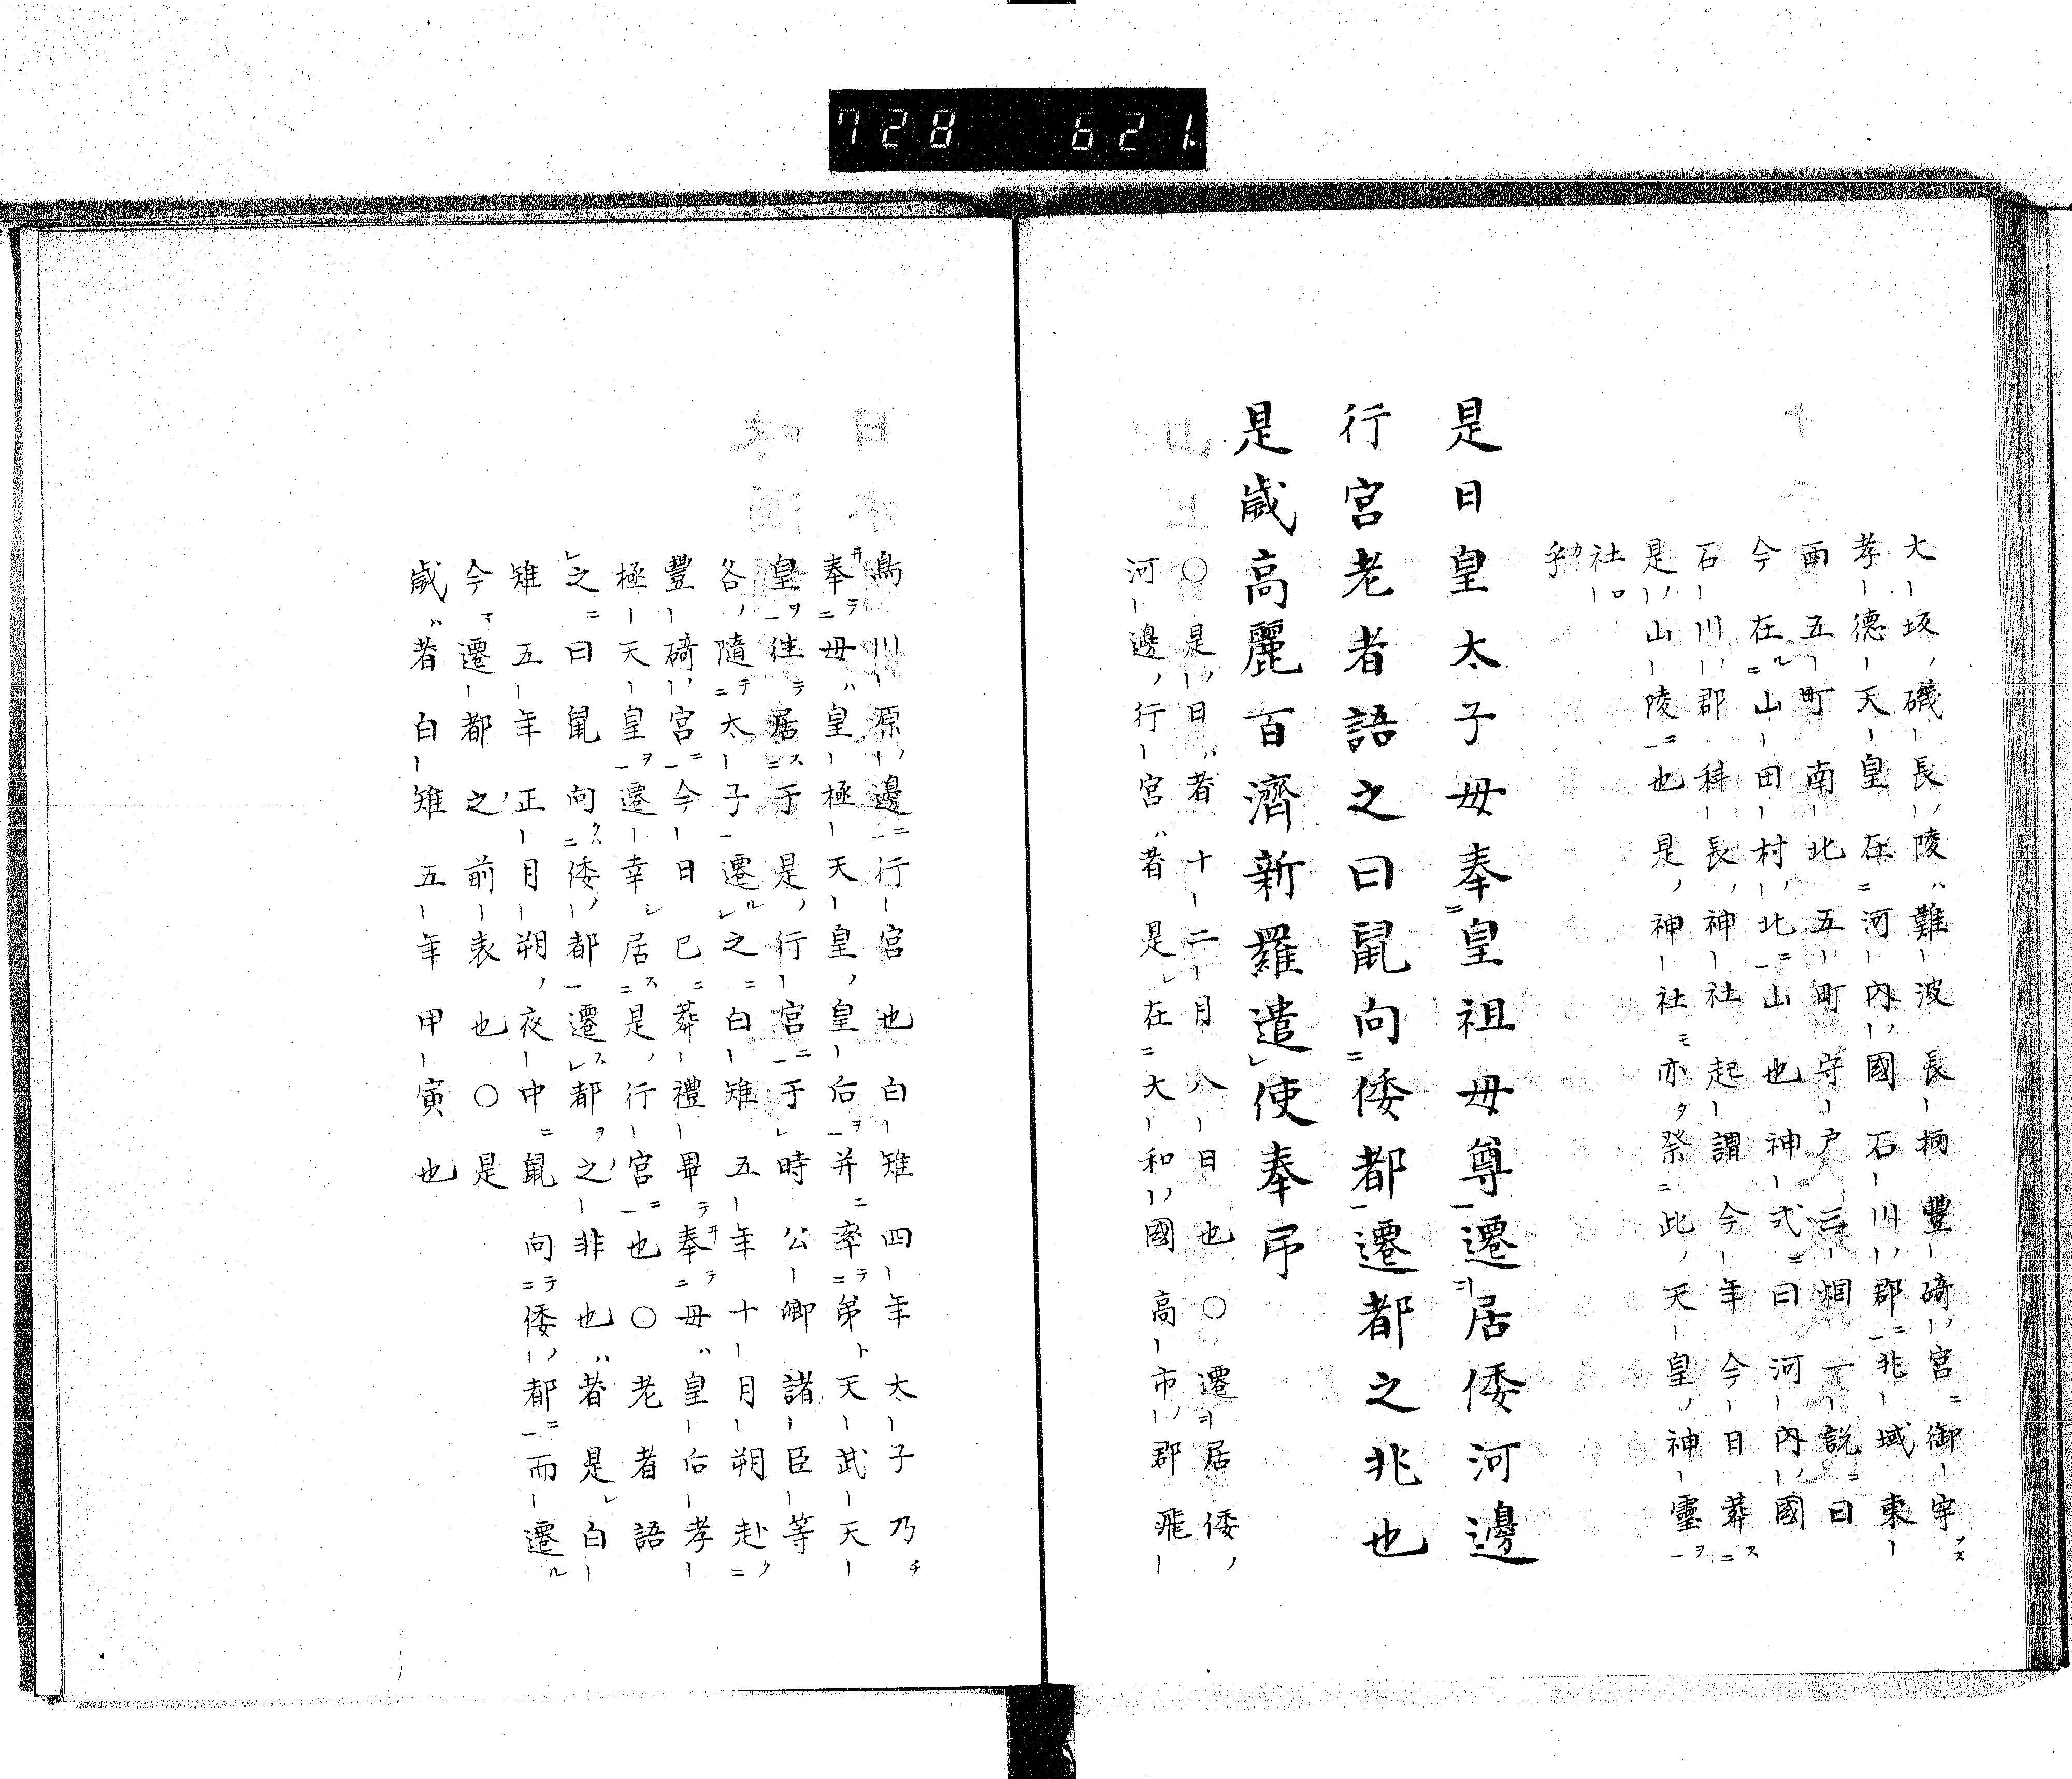 728 621.
大坂磯長陵難波長柄豐碕宮御宇
孝德天皇在河內國石川郡兆域東
西五町南北五町守戸三烟一說曰
今在山田村北山也神式曰河內國
石川郡科長神社起謂今年今日葬
是山陵也是神社亦祭此天皇神靈
社
乎
是日皇太子母奉皇祖母尊遷居倭河邊
行宮老者語之曰鼠向倭都遷都之兆也
是歲高麗百濟新羅遣使奉弔
○是日者十二月八日也○遷居倭
河邊行宮者是在大和國高市郡飛
鳥川原邊行宮也白雉四年太子乃
奉母皇極天皇皇后并率弟天武天
皇往居于是行宮于時公卿諸臣等
各隨太子遷之白雉五年十月朔赴
豐碕宮今日已葬禮畢奉母皇后孝
極天皇遷幸居是行宮也○老者語
之曰鼠向倭都遷都之非也者是白
雉五年正月朔夜中鼠向倭都而遷
今遷都之前表也○是
歲者白雉五年甲寅也